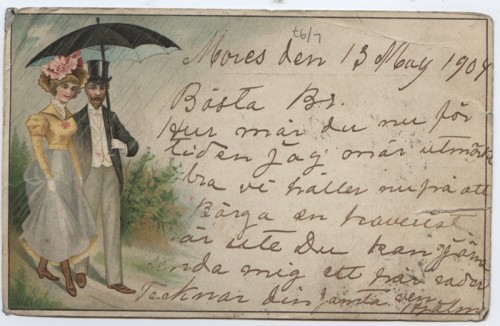 Mores den 13 May 1904
Bästa Br.
Hur mår du nu för
tiden Jag mår utmärk
bra vi håller nu på att
Bärga en
är ute Du kan
sända mig ett par rader
Tecknar din vän